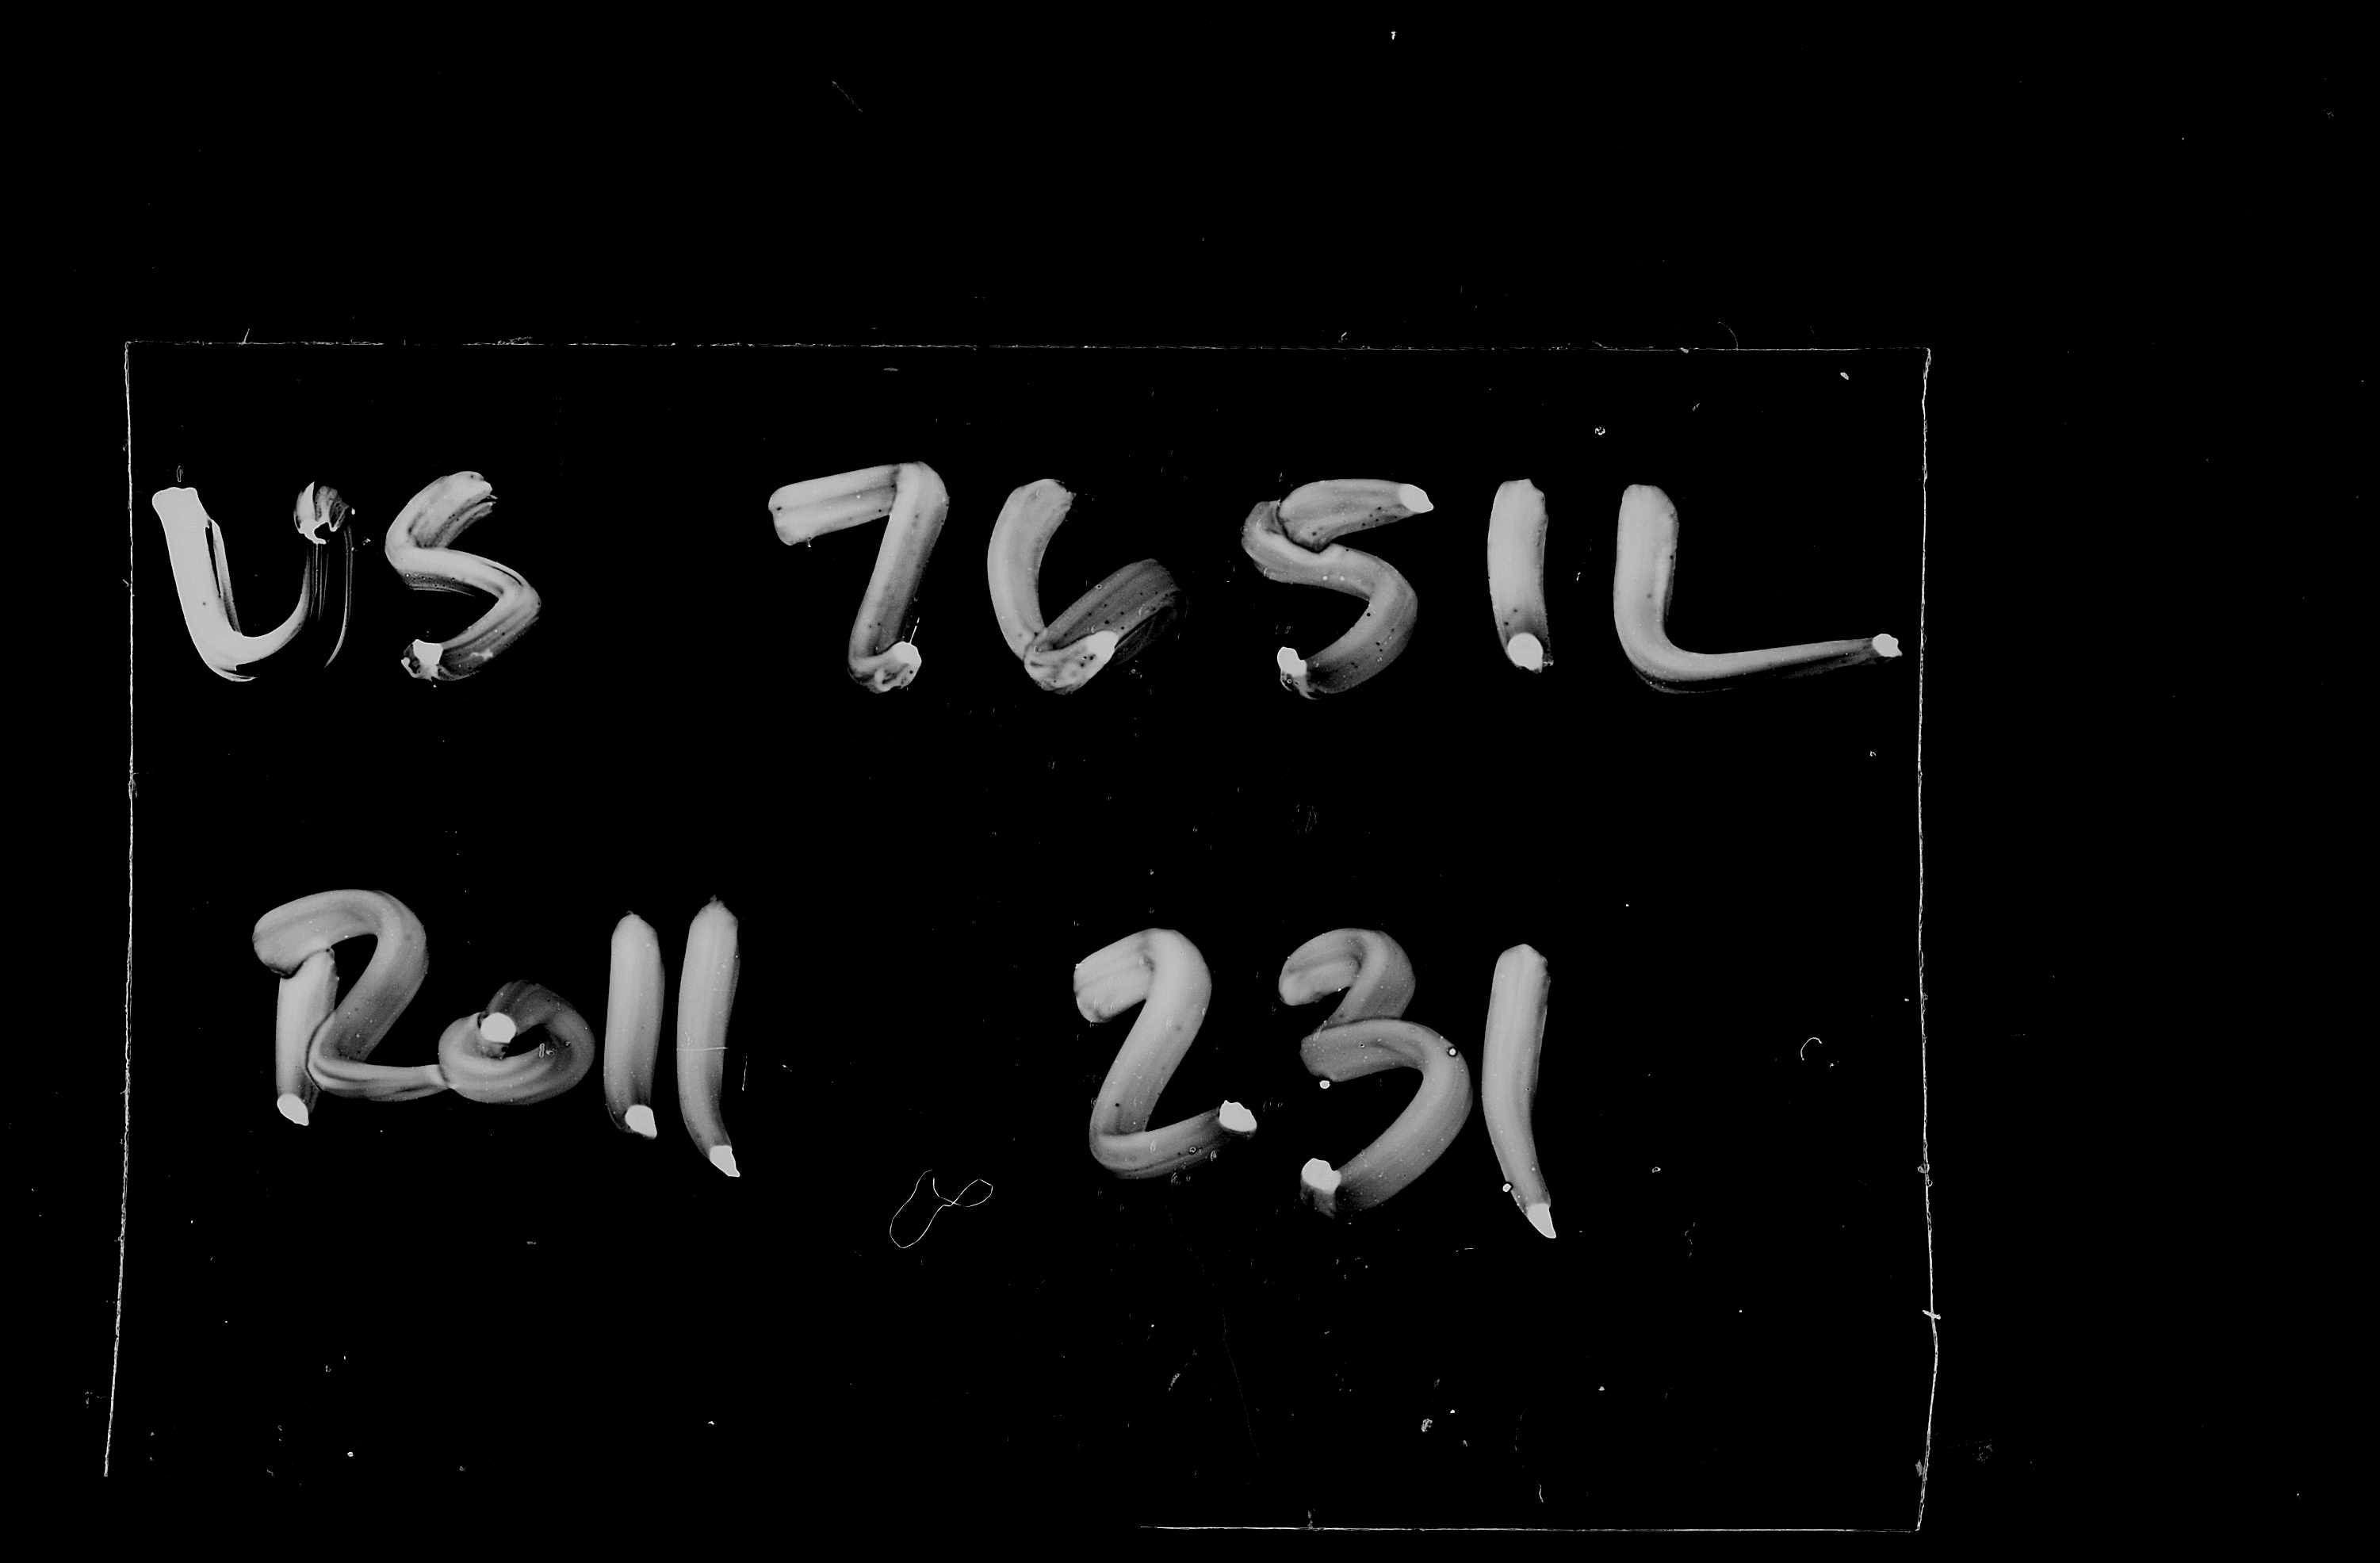 US 7651L
Roll 231